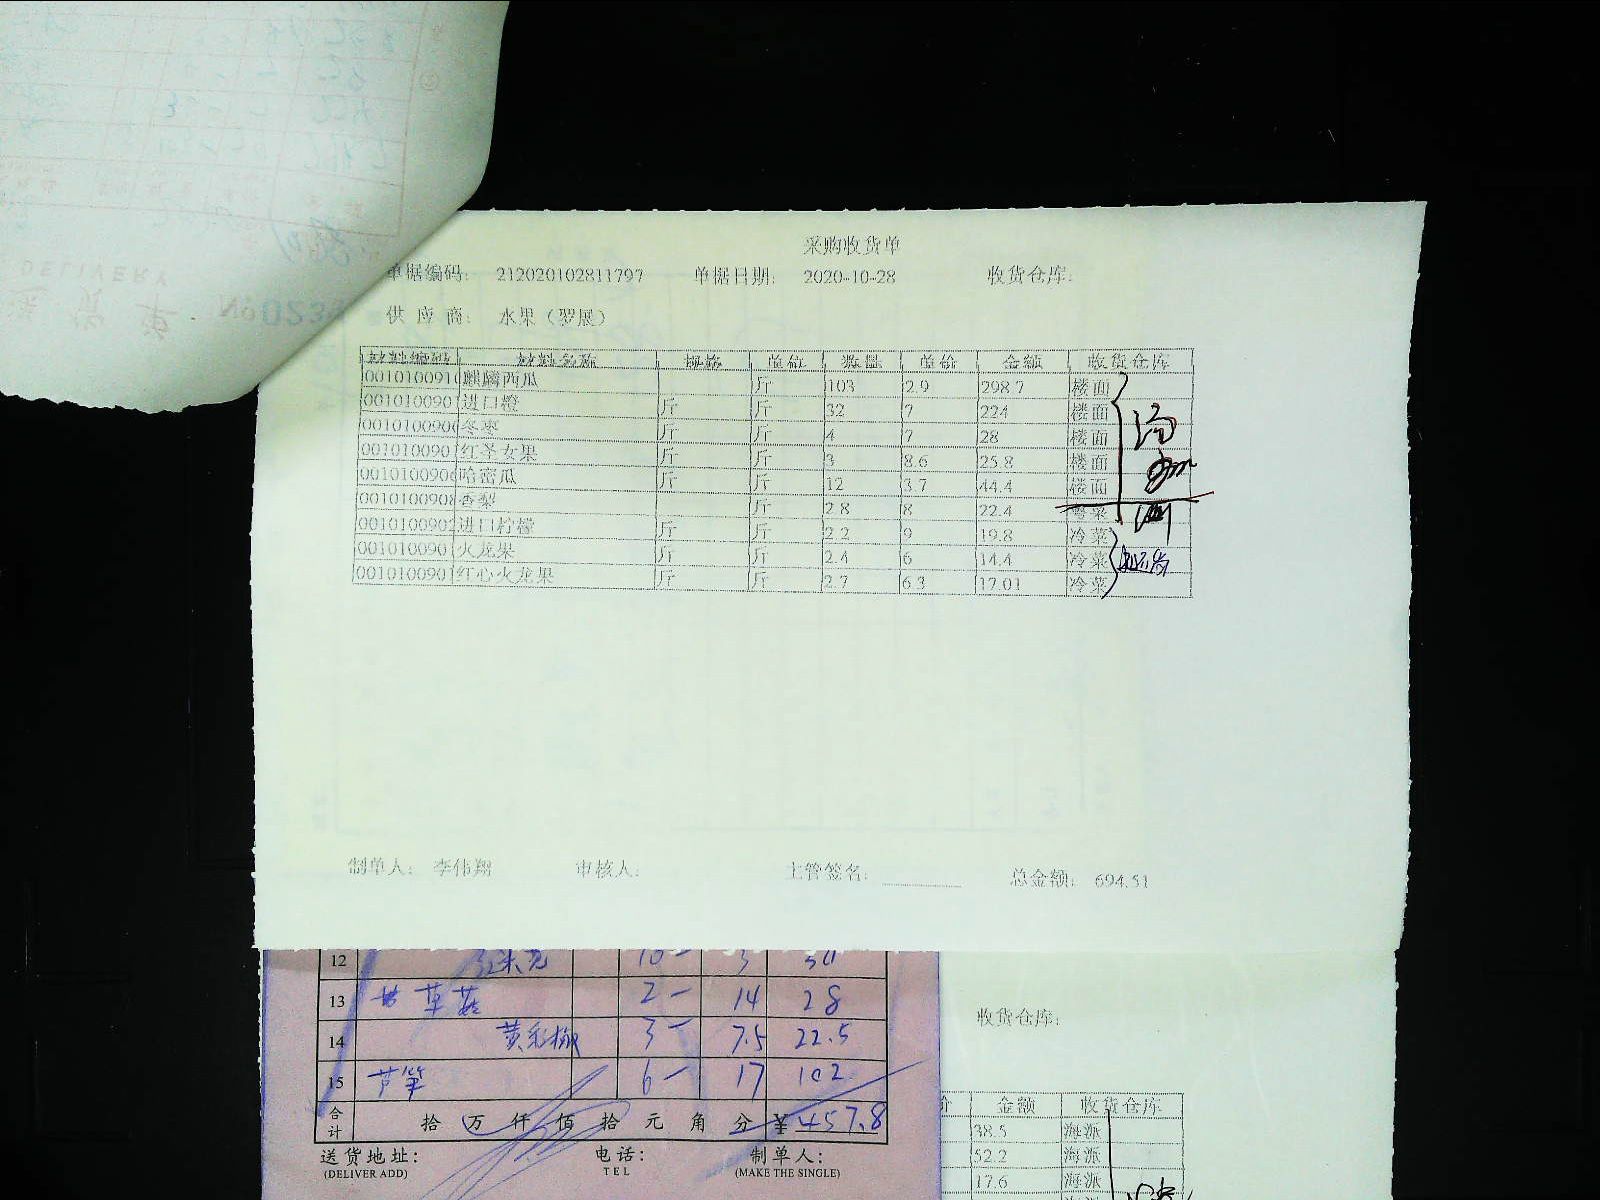 DELIVERY
No 023
采购收货单
单据编码： 212020102811797 单据日期： 2020-10-28 收货仓库：
供 应 商： 水果（罗展）
材料编码 材料名称 规格 单位 数量 单价 金额 收货仓库
0010100910 麒麟西瓜 斤 103 2.9 298.7 楼面
001010090 进口橙 斤 斤 32 7 224 楼面
0010100900 冬枣 斤 斤 4 7 28 楼面
001010090 红圣女果 斤 斤 3 8.6 25.8 楼面
0010100906 哈密瓜 斤 斤 12 3.7 44.4 楼面
0010100908 香梨 斤 2.8 8 22.4 粤菜
0010100902 进口柠檬 斤 斤 2.2 9 19.8 冷菜
001010090 火龙果 斤 斤 2.4 6 14.4 冷菜
001010090 红心火龙果 斤 斤 2.7 6.3 17.01 冷菜
制单人： 李伟翔 审核人： 主管签名： 总金额： 694.51
12 10- 3 30
13 2- 14 28
14 黄彩椒 3- 7.5 22.5
15 芦笋 6- 17 102
合计 拾 万 仟 佰 拾 元 角 分 ¥457.8
送货地址： 电话： 制单人：
(DELIVER ADD) TEL (MAKE THE SINGLE)
收货仓库：
价 金额 收货仓库
38.5 海派
52.2 海派
17.6 海派